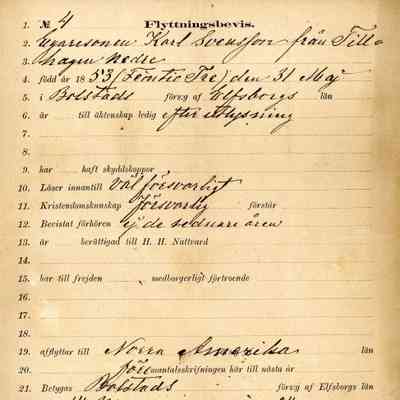 1. № 4 Flyttningsbevis.
2. Egaresonen Karl Svensson från Till=
3. hagen Nedre
4. född år 1853 (Femtio Tre) den 31 Maj
5. i Bolstads förs:g af Elfsborgs län
6. är till äktenskap ledig efter etlysning
7.
8.
9. har haft skyddskoppor
10. Läser innantill väl försvarligt
11. Kristendomskunskap försvarlig förstår
12. Bevistat förhören ej de sednare åren
13. är berättigad till H. H. Nattvard
14.
15. har till frejden medborgerligt förtroende
16.
17.
18.
19. afflyttar till Norra Amerika län
20. före mantalsskrifningen här till nästa år
21. Betygas Bolstads förs:g af Elfsborgs län